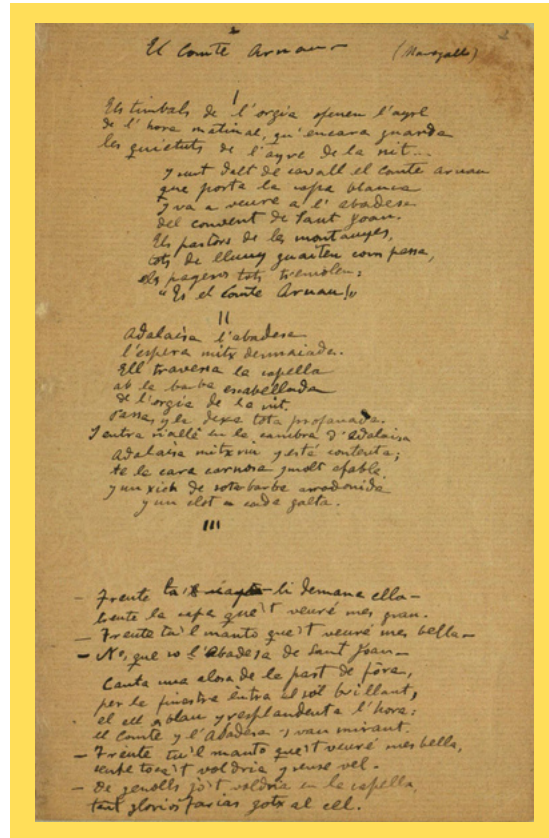 2
El Comte Arnau — (Maragall)
2
I
Els timbals de l'orgia omplen l'ayre
de l'hora matinal, qu'encara guarda
les quietuts de l'ayre de la nit...
Y surt dalt de cavall el Comte Arnau
que porta la capa blanca
Y va a veure a l'abadesa
del convent de Sant Joan.
Els pastors de les montanyes,
tots de lluny guaiten com passa,
els pagesos tots tremolen:
"Es el Comte Arnau!"
II
Adalaisa l'abadesa
l'espera mitx desmaiada.
Ell traversa la capella
ab la barba escabellada
de l'orgia de la nit.
Passa, y la dexa tota profanada.
Y entra riallé en la cambra d'Adalaisa
Adalaisa mitx riu y está contenta;
te la cara carnosa y molt afable
y un xich de sotabarba arrodonida
y un clot a cada galta.
III
— Treute la li demana ella —
treute la capa que't veuré mes gran.
— Treute tu'l manto que't veuré mes bella —
— No, que so l'Abadesa de Sant Joan —
Canta una alosa de la part de fòra,
per la finestra entra el sòl brillant,
el cel es blau y resplandenta l'hora:
el Comte y l'Abadesa s van mirant.
— Treute tu'l manto que't veuré mes bella,
sense toca't voldria y sense vel.
— De genolls jo't voldria en la capella,
tant gloriós farias gotx al cel.